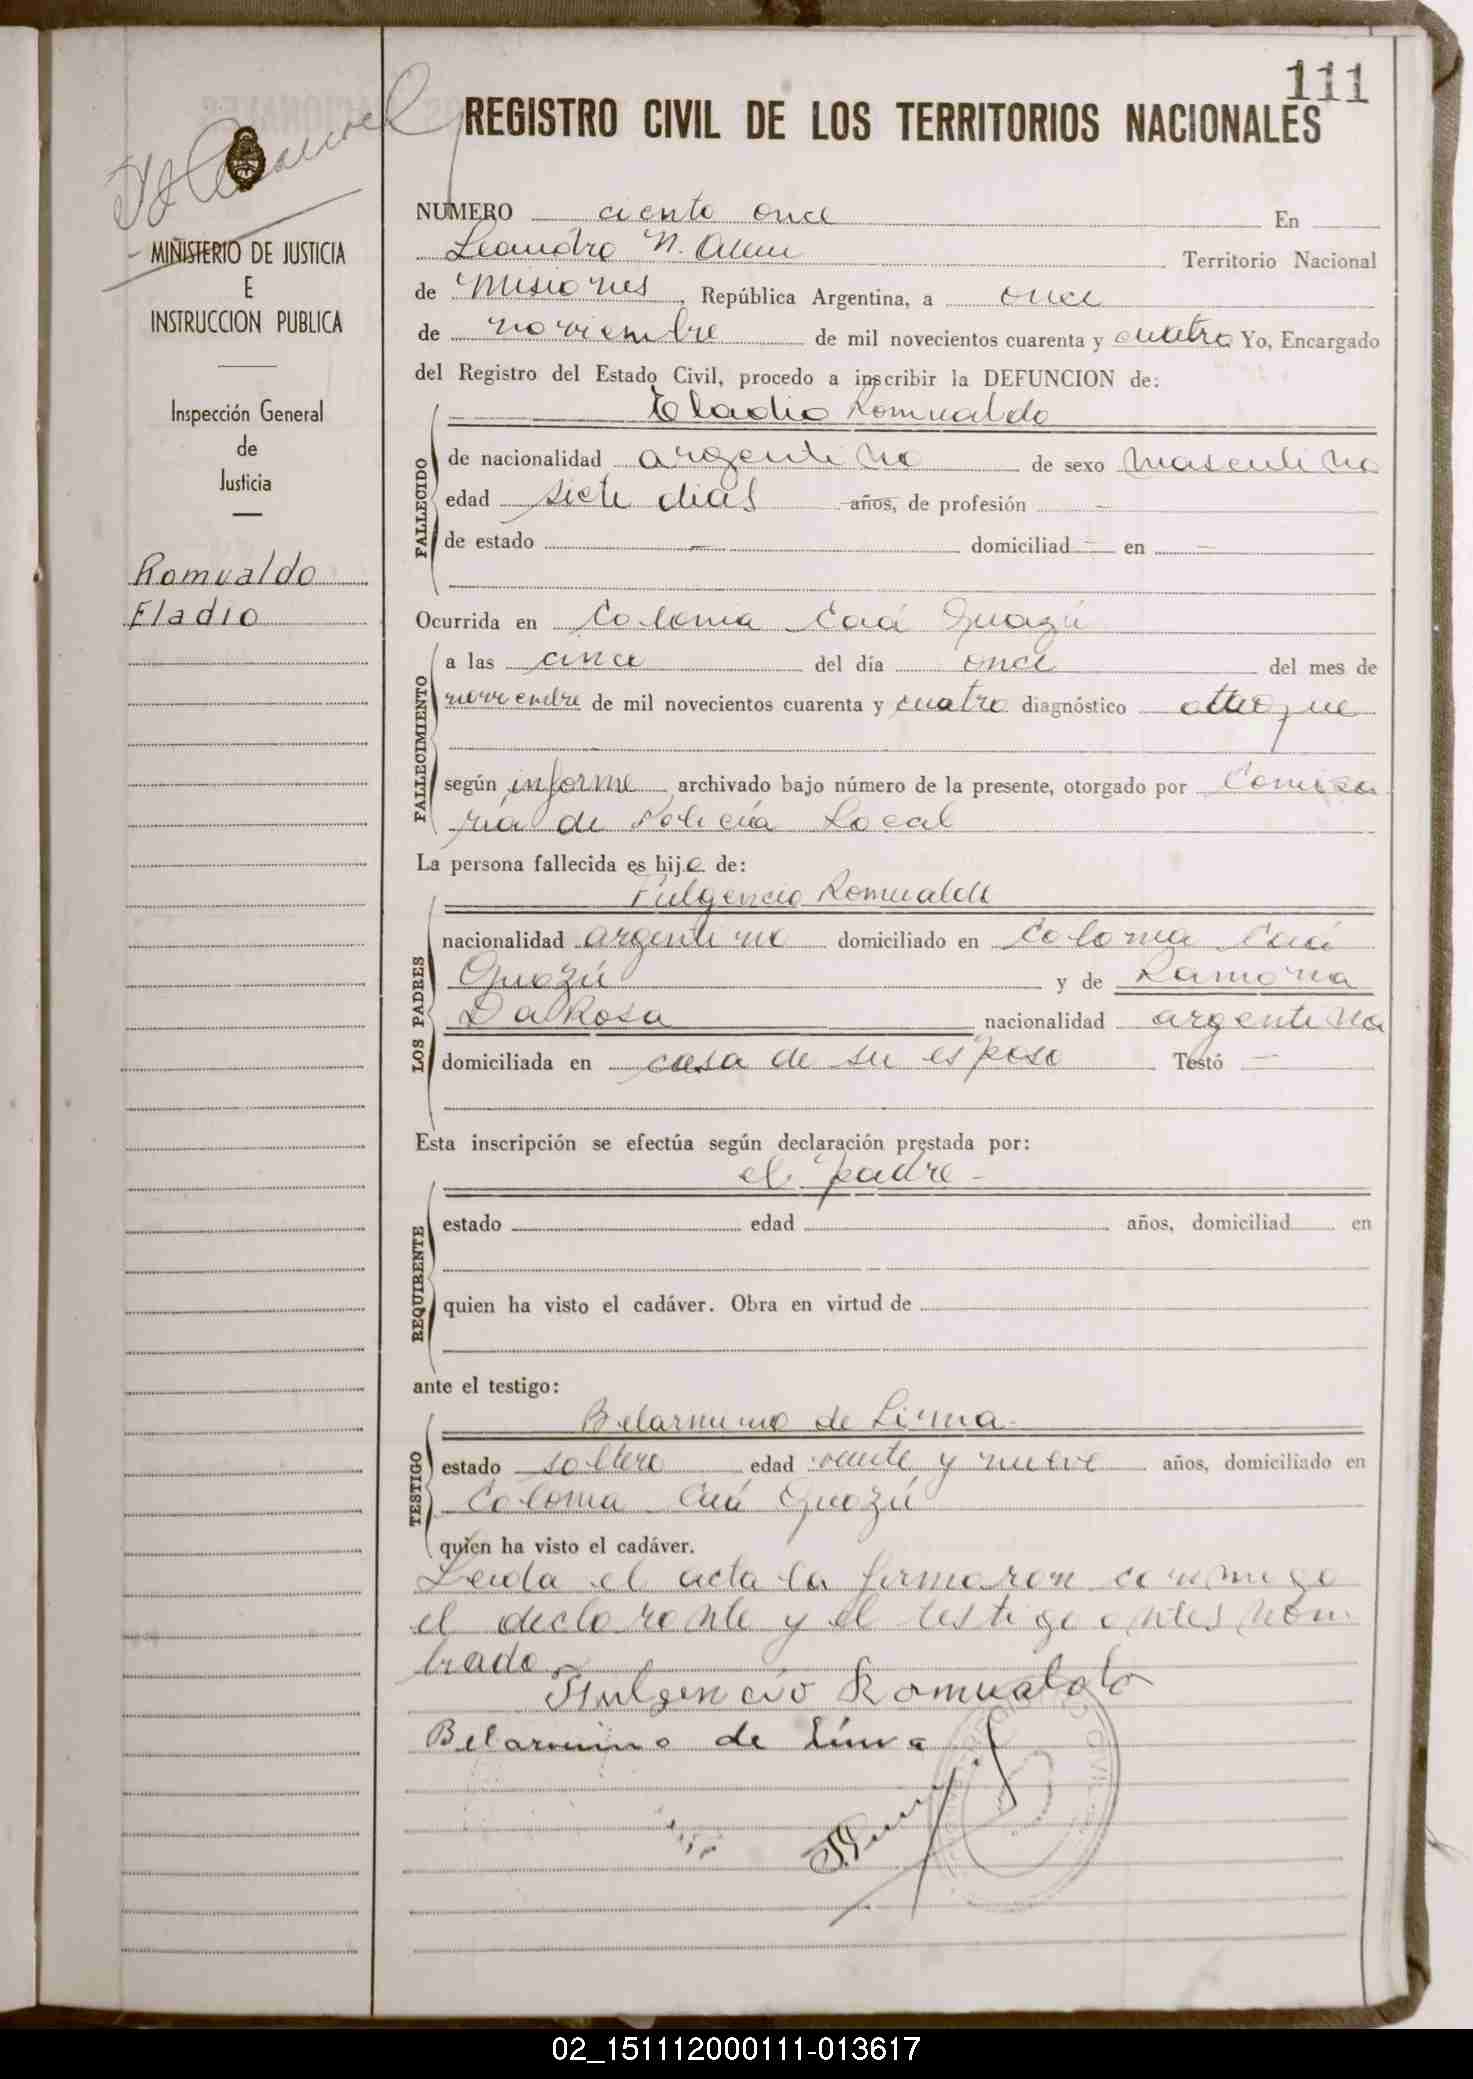 111
REGISTRO CIVIL DE LOS TERRITORIOS NACIONALES
MINISTERIO DE JUSTICIA
E
INSTRUCCION PUBLICA
Inspección General
de
Justicia
Romualdo
Eladio
NUMERO ciento once En
Leandro N. Alem Territorio Nacional
de Misiones, República Argentina, a once
de noviembre de mil novecientos cuarenta y cuatro Yo, Encargado
del Registro del Estado Civil, procedo a inscribir la DEFUNCION de:
Eladio Romualdo
FALLECIDO
de nacionalidad argentino de sexo masculino
edad siete dias años, de profesión -
de estado - domiciliad - en -
Ocurrida en Colonia Caá Guazú
FALLECIMIENTO
a las cinco del día once del mes de
noviembre de mil novecientos cuarenta y cuatro diagnóstico ataque
según informe archivado bajo número de la presente, otorgado por Comisa
ria de Policía Local
La persona fallecida es hijo de:
Fulgencio Romualdo
LOS PADRES
nacionalidad argentino domiciliado en Colonia Caá
Guazú y de Ramona
Da Rosa nacionalidad argentina
domiciliada en casa de su esposo Testó -
Esta inscripción se efectúa según declaración prestada por:
el padre -
REQUIRENTE
estado edad años, domiciliad en
quien ha visto el cadáver. Obra en virtud de
ante el testigo:
Belarmino de Lima
TESTIGO
estado soltero edad veinte y nueve años, domiciliado en
Colonia Caá Guazú
quien ha visto el cadáver.
Leida el acta la firmaron conmigo
el declarante y el testigo antes nom
brado.
Fhulgencio Romualdo
Belarmino de Lima
02_151112000111-013617